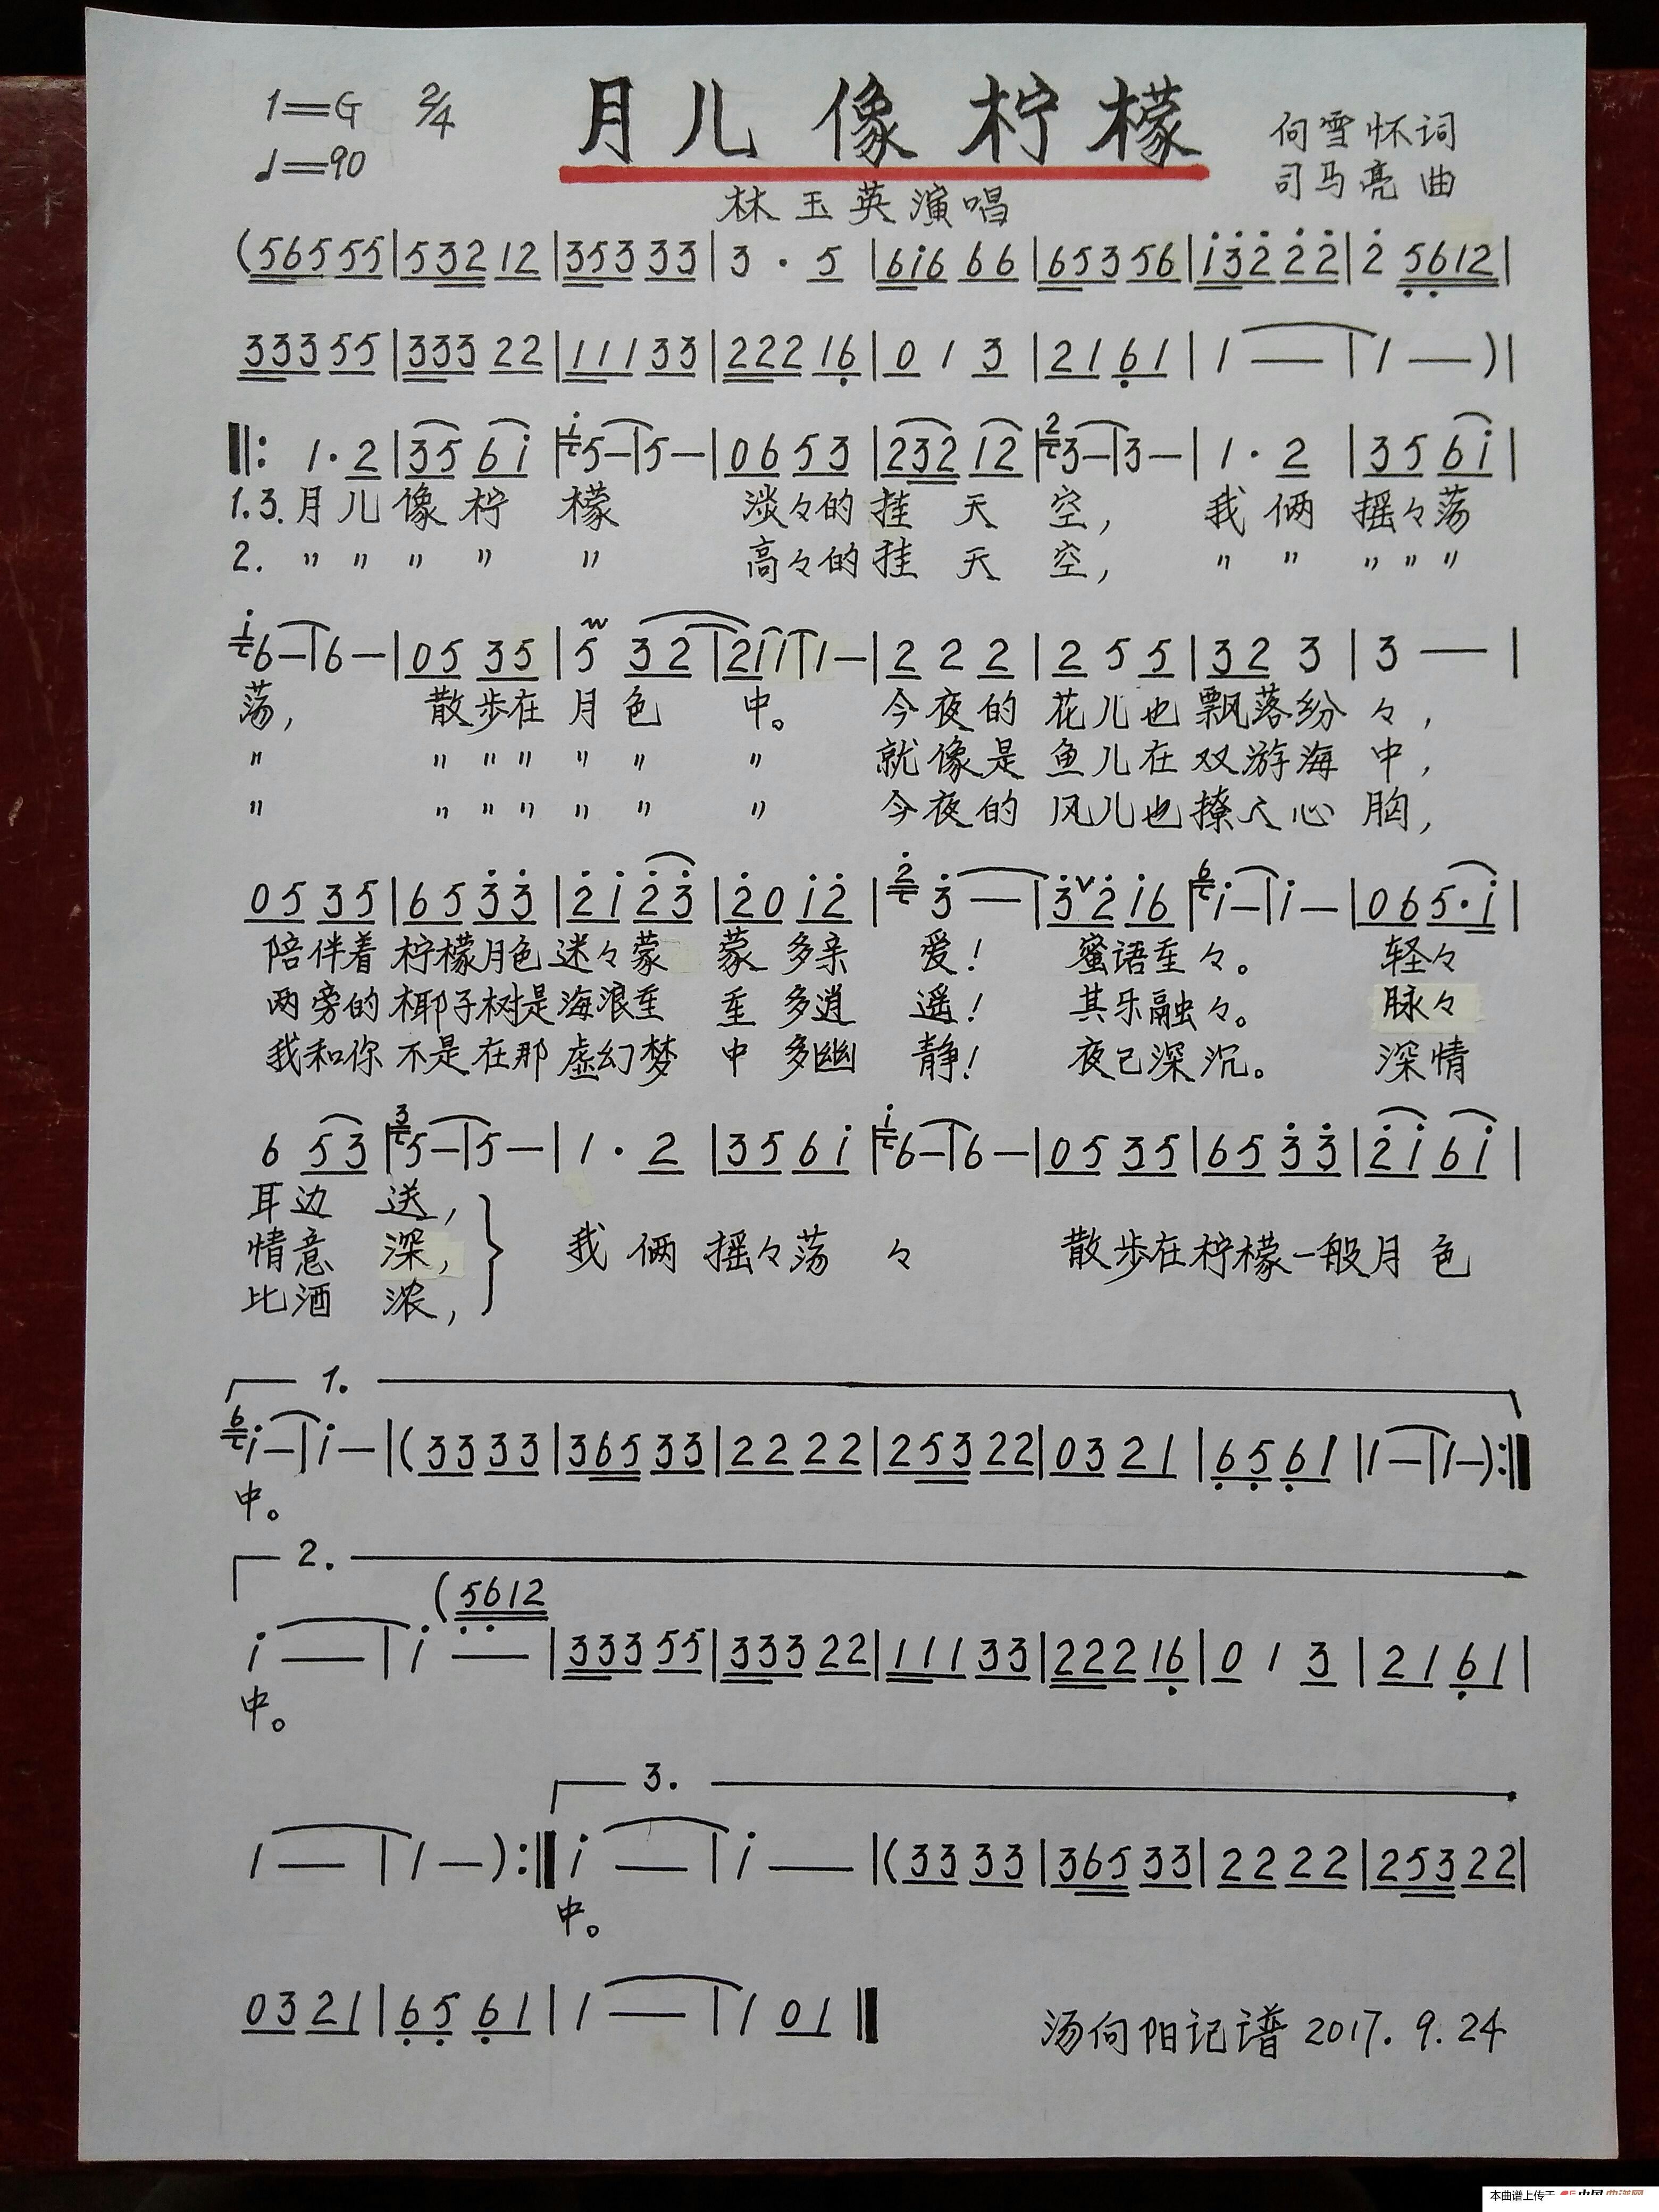 1=G 2/4 月儿像柠檬 何雪怀词
♩=90 司马亮 曲
林玉英演唱
(56555 5|532 12|353 33|3 · 5|6i6 66|653 56|i32 22|2 5612|
333 55|333 22|111 33|222 16|0 1 3|21 61|1 —|1 —)|
‖: 1·2|35 6i|5—|5—|06 53|232 12|3—|3—|1·2|35 6i|
1.3.月儿像柠 檬 淡々的挂 天 空, 我 俩 摇々荡
2. 〃 〃 〃 〃 〃 高々的挂 天 空, 〃 〃 〃 〃 〃
6—|6—|05 35|5 32|2 1 1|1—|2 2 2|2 5 5|32 3|3 —|
荡, 散步在 月 色 中。 今夜的 花儿也 飘落纷 々,
〃 〃 〃 〃 〃 〃 〃 就像是 鱼儿在 双游海 中,
〃 〃 〃 〃 〃 〃 〃 今夜的 风儿也 撩人心 胸,
05 35|65 33|2i 23|20 i2|3 —|3∨2 i6|i—|i—|06 5·i|
陪伴着 柠檬月色 迷々蒙 蒙 多亲 爱! 蜜语重 々。 轻々
两旁的 椰子树是 海浪重 重 多逍 遥! 其乐融 々。 脉々
我和你 不是在那 虚幻梦 中 多幽 静! 夜已深 沉。 深情
6 53|5—|5—|1·2|35 6i|6—|6—|05 35|65 33|2i 6i|
耳边 送,
情意 深, 我 俩 摇々荡 々 散步在柠檬一般月 色
比酒 浓,
1.
i—|i—|(33 33|365 33|22 22|253 22|03 21|65 61|1—|1—):‖
中。
2.
(5612
i —|i —|333 55|333 22|111 33|222 16|0 1 3|21 61|
中。
3.
1 —|1 —):‖i —|i —|(33 33|365 33|22 22|253 22|
中。
03 21|65 61|1 —|1 01‖ 汤向阳记谱 2017.9.24
本曲谱上传于